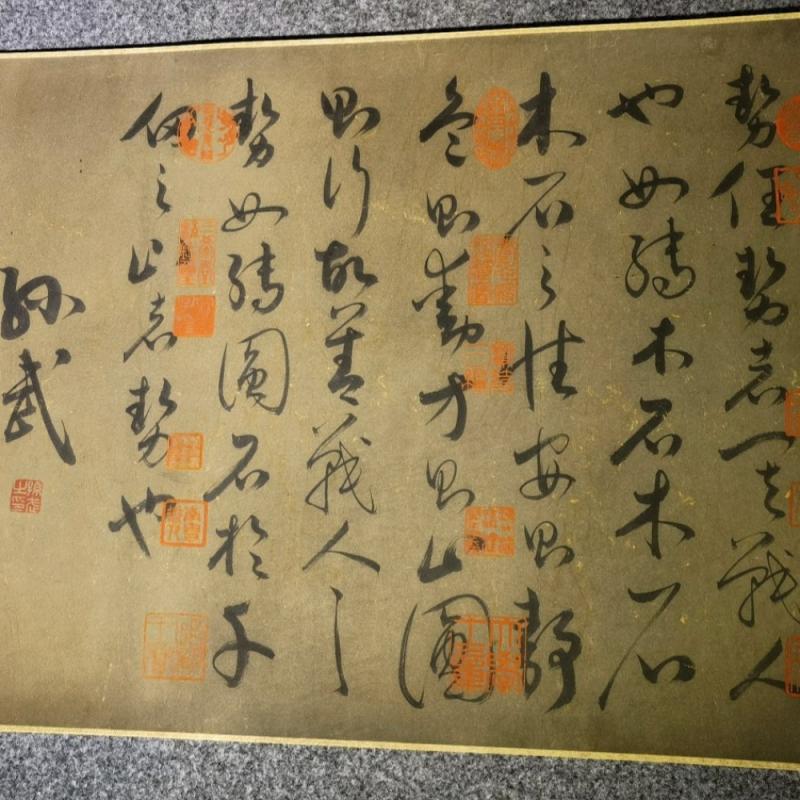 勢任勢者其戰人
也如轉木石木石
木石之性安則靜
危則動方則止圓
則行故善戰人之
勢如轉圓石於千
仞之山者勢也
孫武